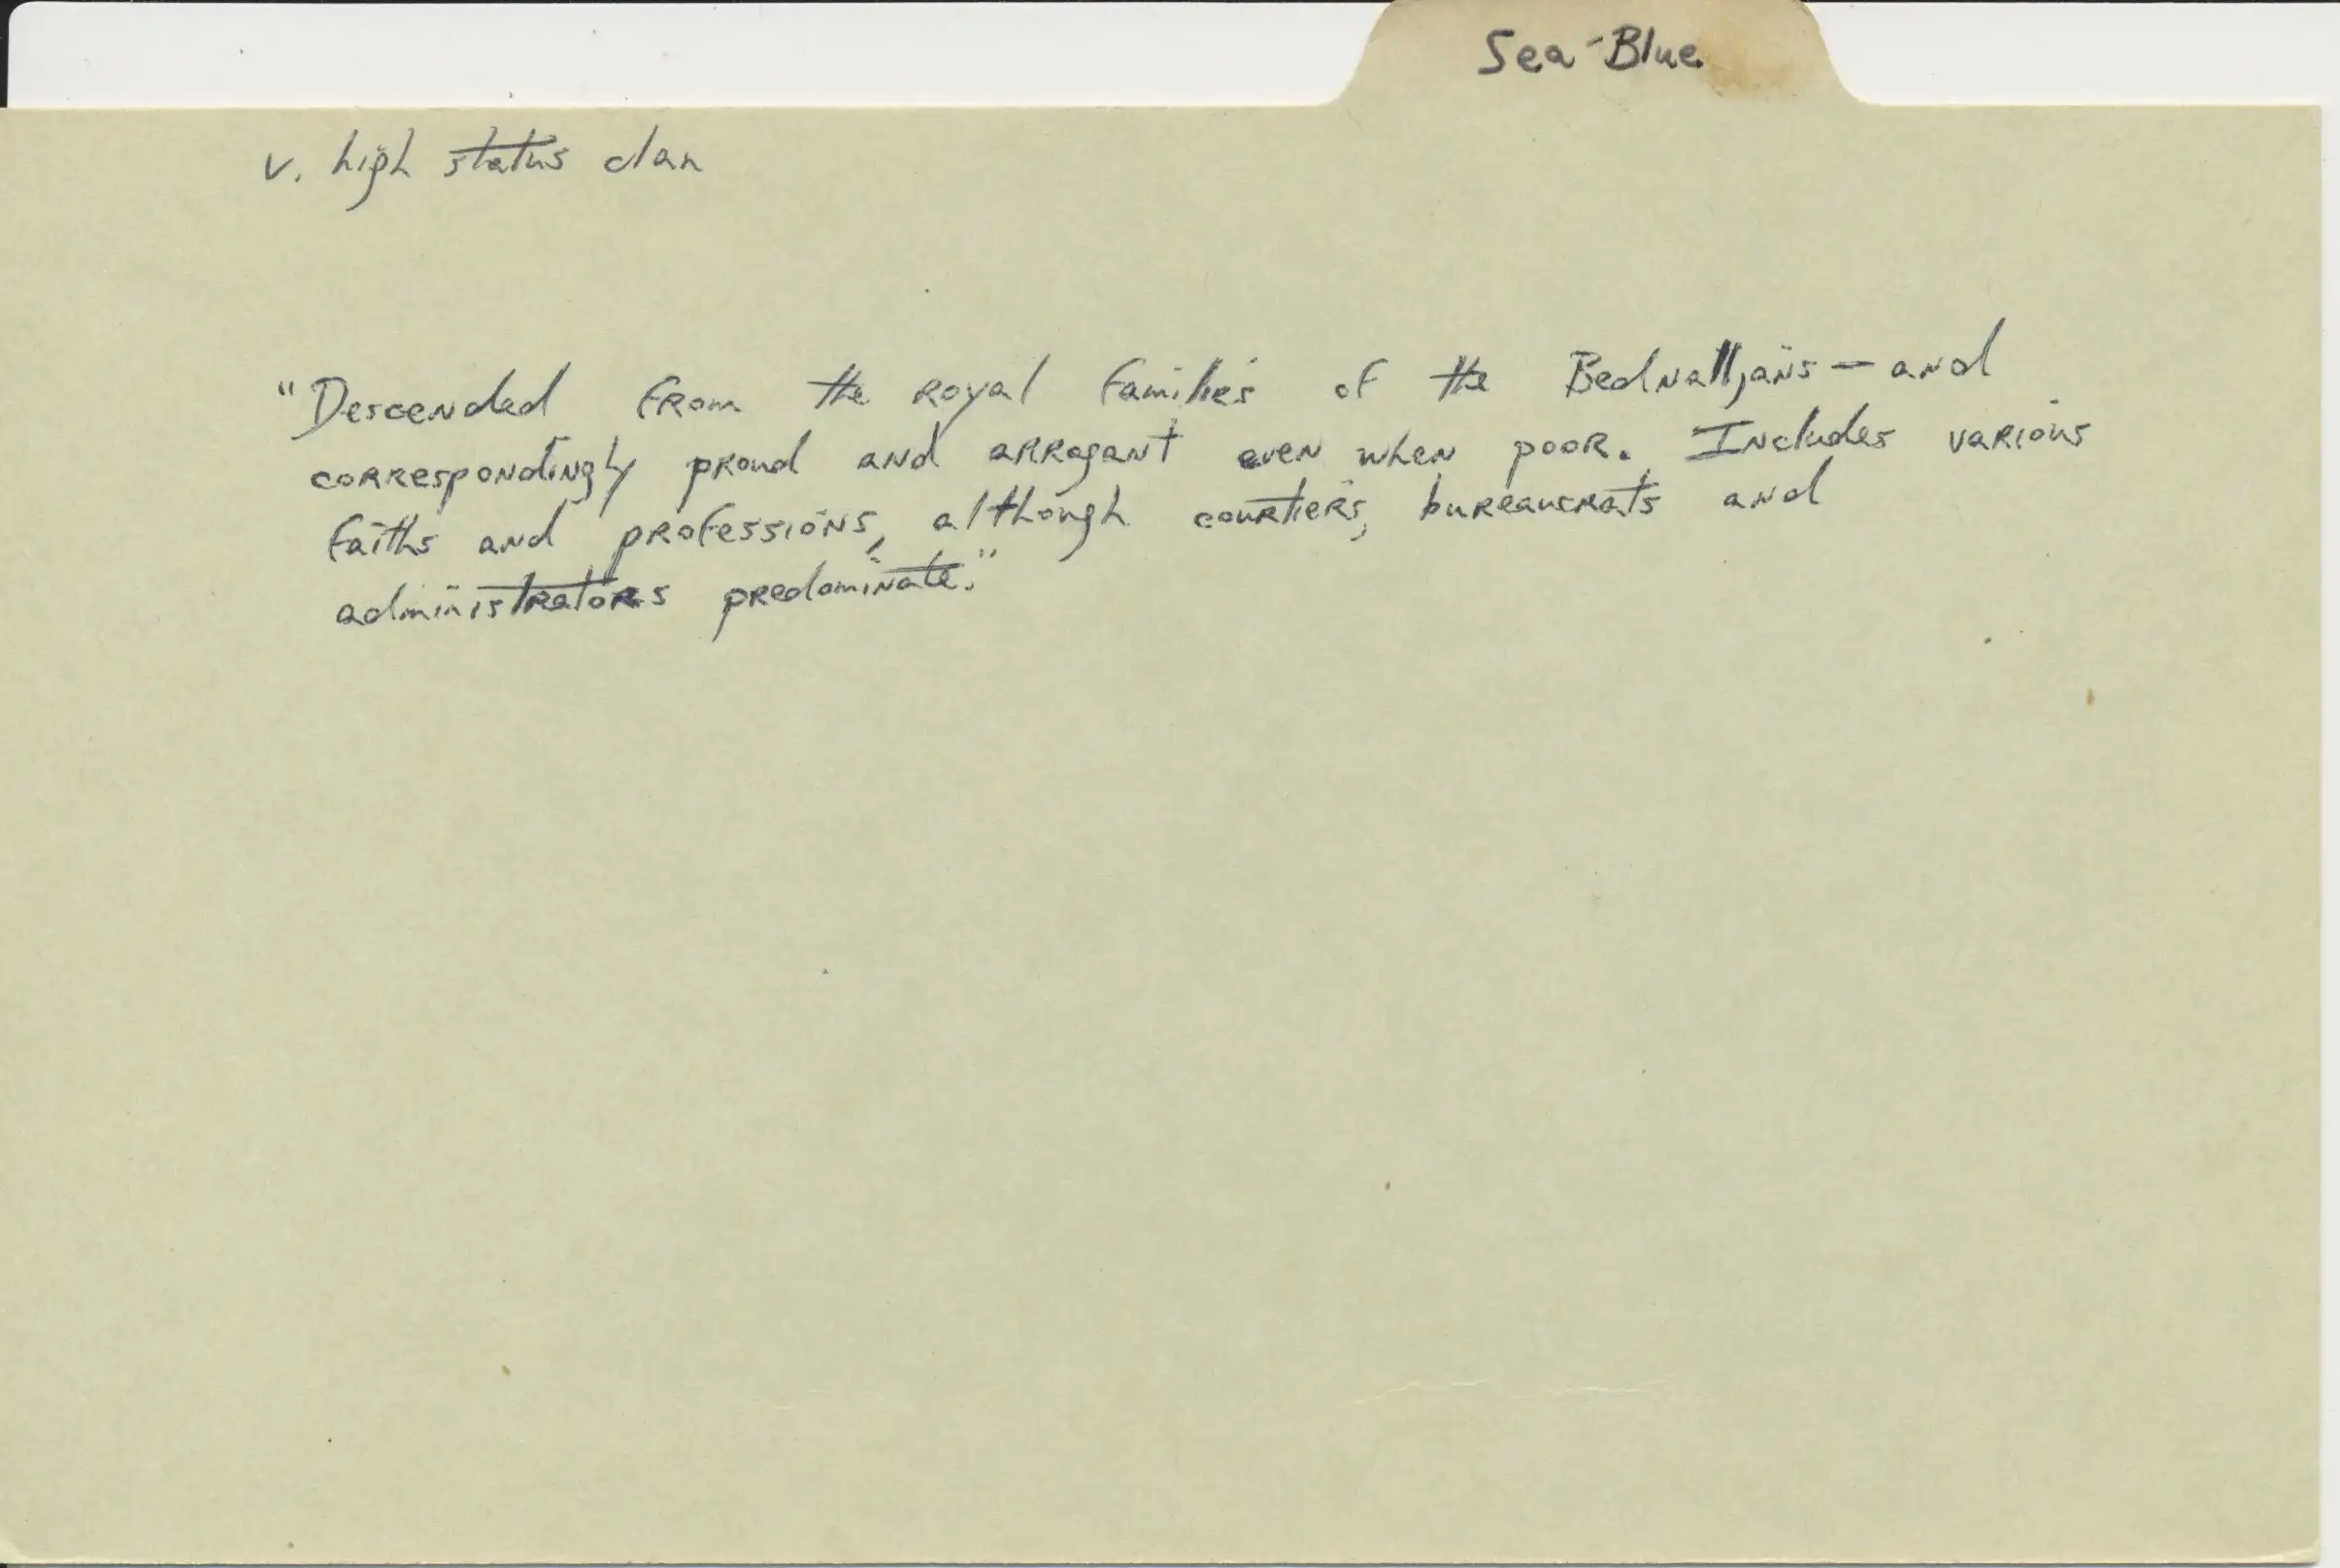 Sea-Blue
v. high status clan
"Descended from the royal families of the Bednalljans — and
correspondingly proud and arrogant even when poor. Includes various
faiths and professions, although courtiers, bureaucrats and
administrators predominate."